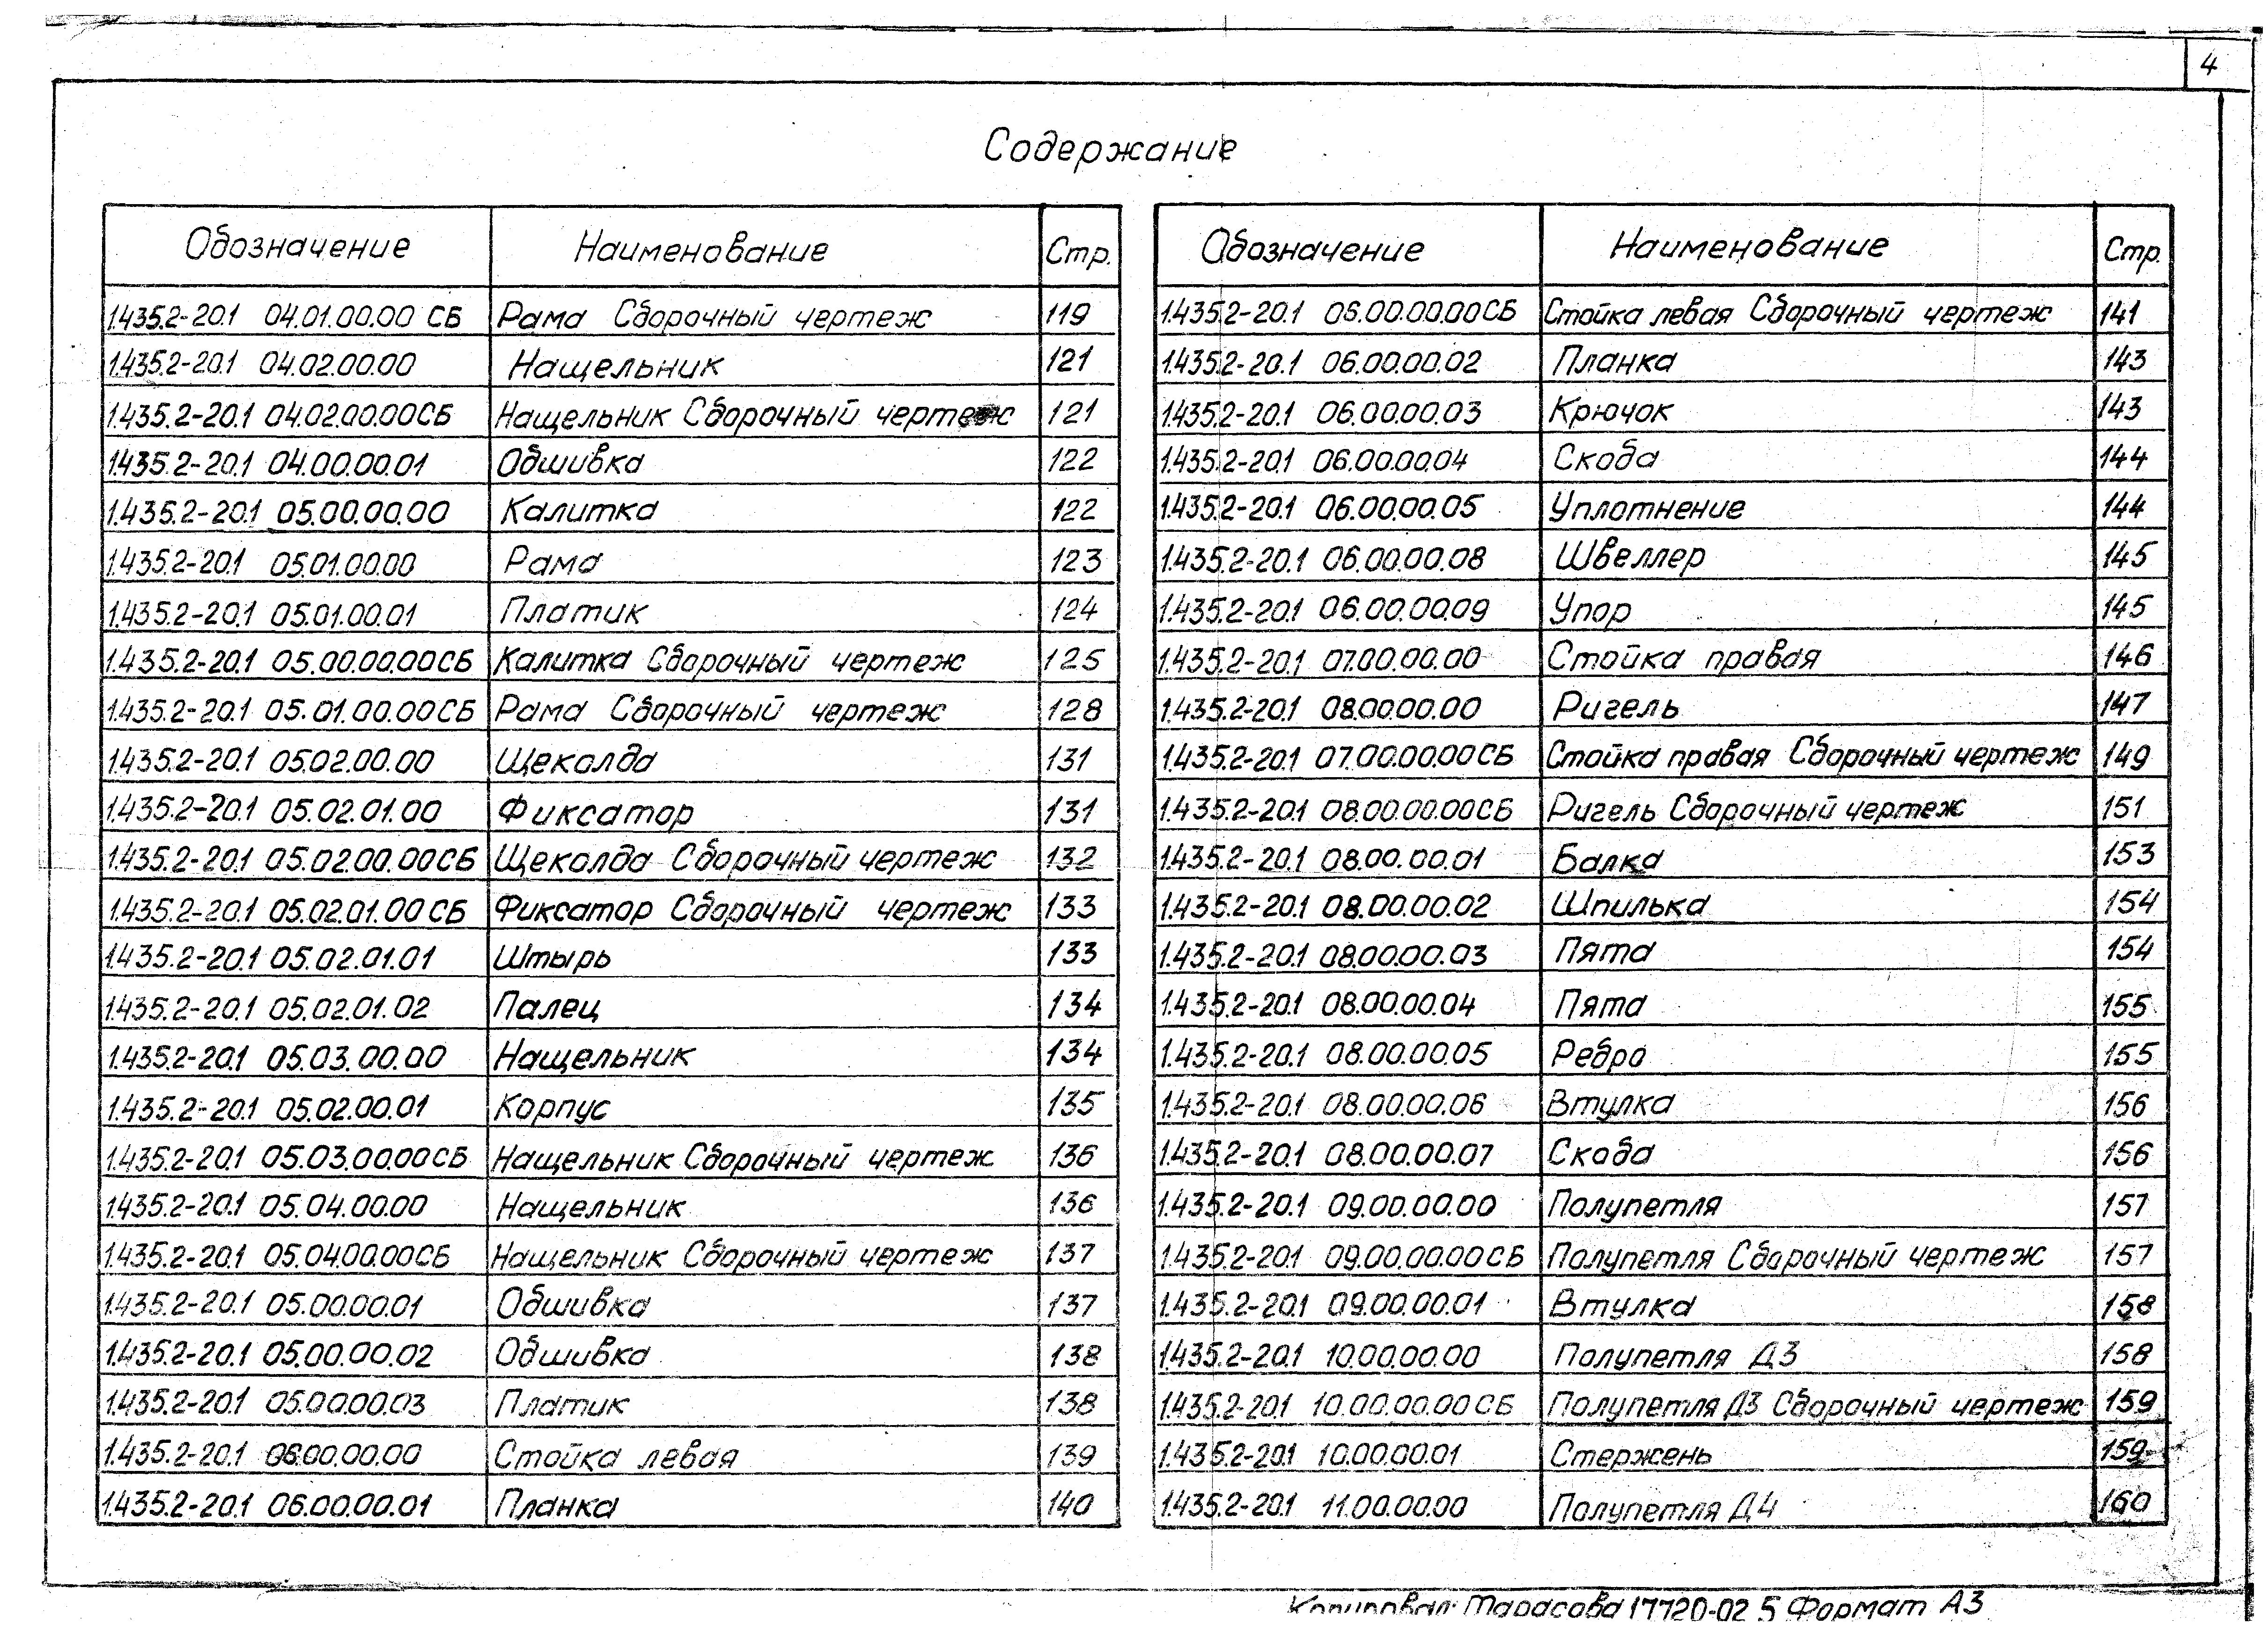 4
Содержание
Обозначение Наименование Стр.
1.435.2-20.1 04.01.00.00 СБ Рама Сборочный чертеж 119
1.435.2-20.1 04.02.00.00 Нащельник 121
1.435.2-20.1 04.02.00.00СБ Нащельник Сборочный чертеж 121
1.435.2-20.1 04.00.00.01 Обшивка 122
1.435.2-20.1 05.00.00.00 Калитка 122
1.435.2-20.1 05.01.00.00 Рама 123
1.435.2-20.1 05.01.00.01 Платик 124
1.435.2-20.1 05.00.00.00СБ Калитка Сборочный чертеж 125
1.435.2-20.1 05.01.00.00СБ Рама Сборочный чертеж 128
1.435.2-20.1 05.02.00.00 Щеколда 131
1.435.2-20.1 05.02.01.00 Фиксатор 131
1.435.2-20.1 05.02.00.00СБ Щеколда Сборочный чертеж 132
1.435.2-20.1 05.02.01.00СБ Фиксатор Сборочный чертеж 133
1.435.2-20.1 05.02.01.01 Штырь 133
1.435.2-20.1 05.02.01.02 Палец 134
1.435.2-20.1 05.03.00.00 Нащельник 134
1.435.2-20.1 05.02.00.01 Корпус 135
1.435.2-20.1 05.03.00.00СБ Нащельник Сборочный чертеж 136
1.435.2-20.1 05.04.00.00 Нащельник 136
1.435.2-20.1 05.04.00.00СБ Нащельник Сборочный чертеж 137
1.435.2-20.1 05.00.00.01 Обшивка 137
1.435.2-20.1 05.00.00.02 Обшивка 138
1.435.2-20.1 05.00.00.03 Платик 138
1.435.2-20.1 06.00.00.00 Стойка левая 139
1.435.2-20.1 06.00.00.01 Планка 140
Обозначение Наименование Стр.
1.435.2-20.1 06.00.00.00СБ Стойка левая Сборочный чертеж 141
1.435.2-20.1 06.00.00.02 Планка 143
1.435.2-20.1 06.00.00.03 Крючок 143
1.435.2-20.1 06.00.00.04 Скоба 144
1.435.2-20.1 06.00.00.05 Уплотнение 144
1.435.2-20.1 06.00.00.08 Швеллер 145
1.435.2-20.1 06.00.00.09 Упор 145
1.435.2-20.1 07.00.00.00 Стойка правая 146
1.435.2-20.1 08.00.00.00 Ригель 147
1.435.2-20.1 07.00.00.00СБ Стойка правая Сборочный чертеж 149
1.435.2-20.1 08.00.00.00СБ Ригель Сборочный чертеж 151
1.435.2-20.1 08.00.00.01 Балка 153
1.435.2-20.1 08.00.00.02 Шпилька 154
1.435.2-20.1 08.00.00.03 Пята 154
1.435.2-20.1 08.00.00.04 Пята 155
1.435.2-20.1 08.00.00.05 Ребро 155
1.435.2-20.1 08.00.00.06 Втулка 156
1.435.2-20.1 08.00.00.07 Скоба 156
1.435.2-20.1 09.00.00.00 Полупетля 157
1.435.2-20.1 09.00.00.00СБ Полупетля Сборочный чертеж 157
1.435.2-20.1 09.00.00.01 Втулка 158
1.435.2-20.1 10.00.00.00 Полупетля Д3 158
1.435.2-20.1 10.00.00.00СБ Полупетля Д3 Сборочный чертеж 159
1.435.2-20.1 10.00.00.01 Стержень 159
1.435.2-20.1 11.00.00.00 Полупетля Д4 160
Копировал: Тарасова 17720-02 5 Формат А3